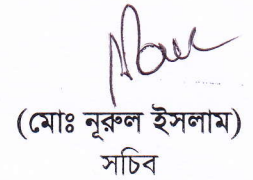 (মোঃ নূরুল ইসলাম)
সচিব